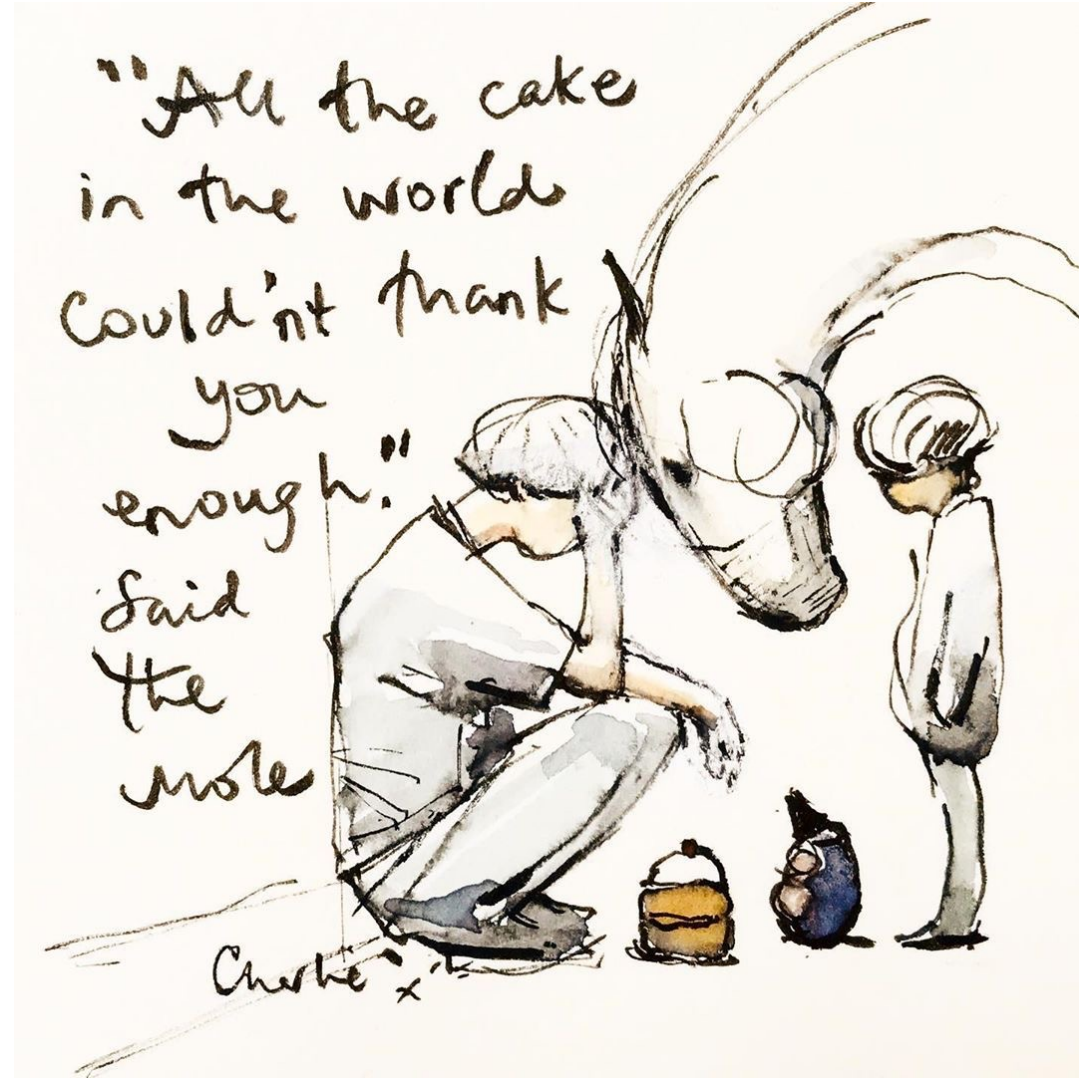 "All the cake
in the world
Could'nt thank
you
enough."
Said
the
mole
Charlie x